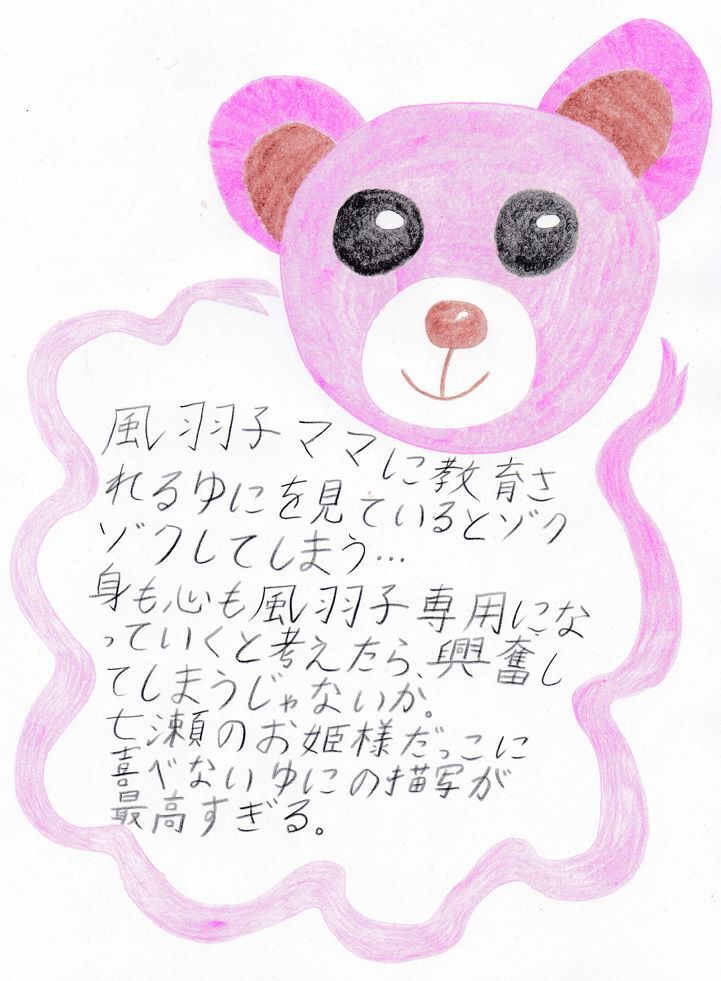 風羽子ママに教育さ
れるゆにを見ているとゾク
ゾクしてしまう…
身も心も風羽子専用にな
っていくと考えたら、興奮し
てしまうじゃないか。
七瀬のお姫様だっこに
喜べないゆにの描写が
最高すぎる。